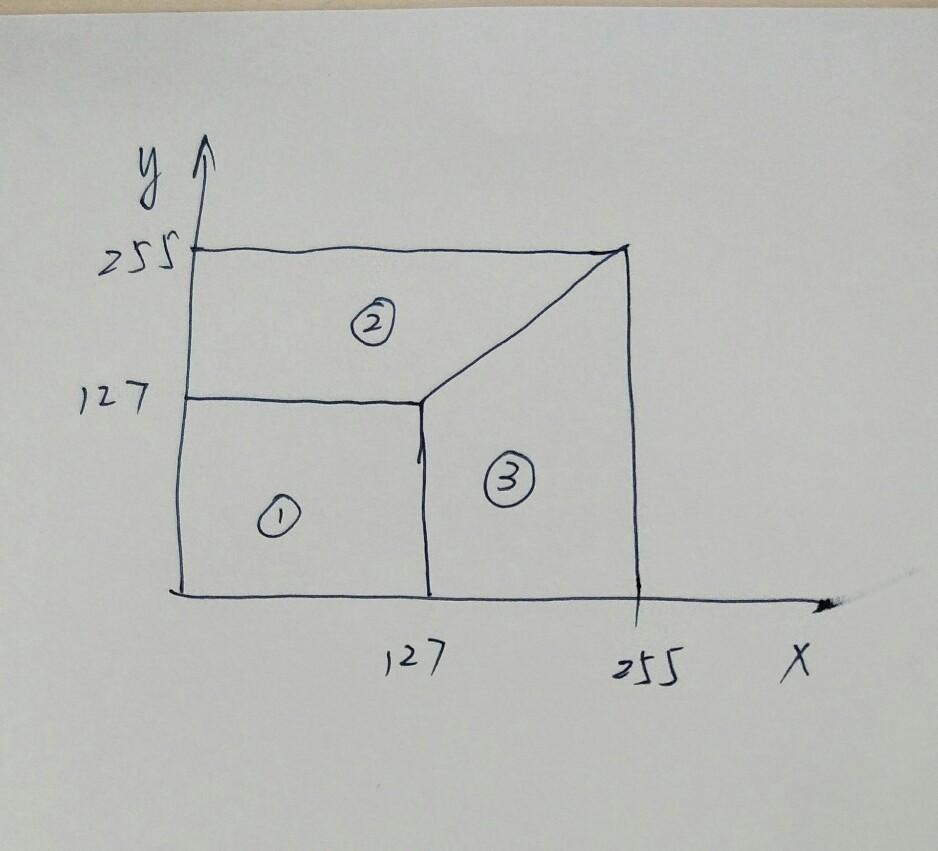 y
255
②
127
③
①
127 255 X